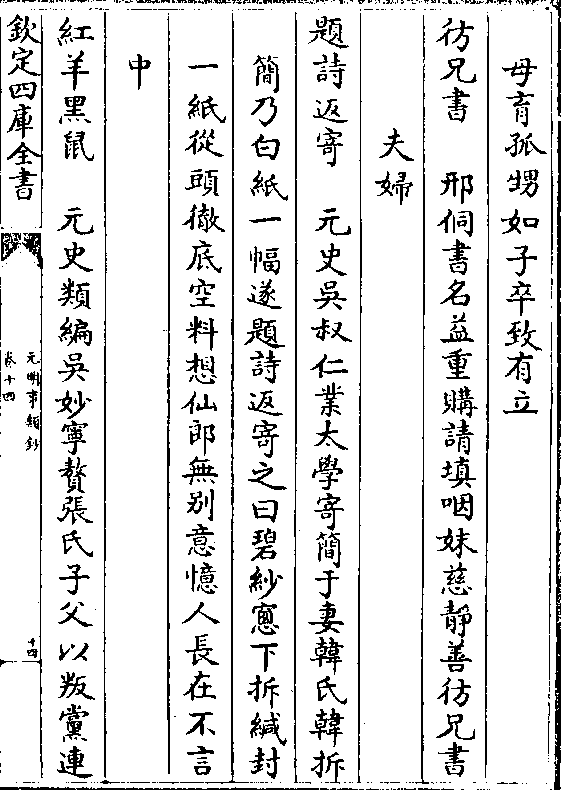 母育孤甥如子卒致有立
彷兄書　邢侗書名益重購請填咽妹慈靜善彷兄書
夫婦
題詩返寄　元史吳叔仁業太學寄簡于妻韓氏韓拆
簡乃白紙一幅遂題詩返寄之曰碧紗窻下拆緘封
一紙從頭徹底空料想仙郎無别意憶人長在不言
中
紅羊黑鼠　元史類編吳妙寧贅張氏子父以叛黨連
欽定四庫全書
元明事類鈔
卷十四
十四